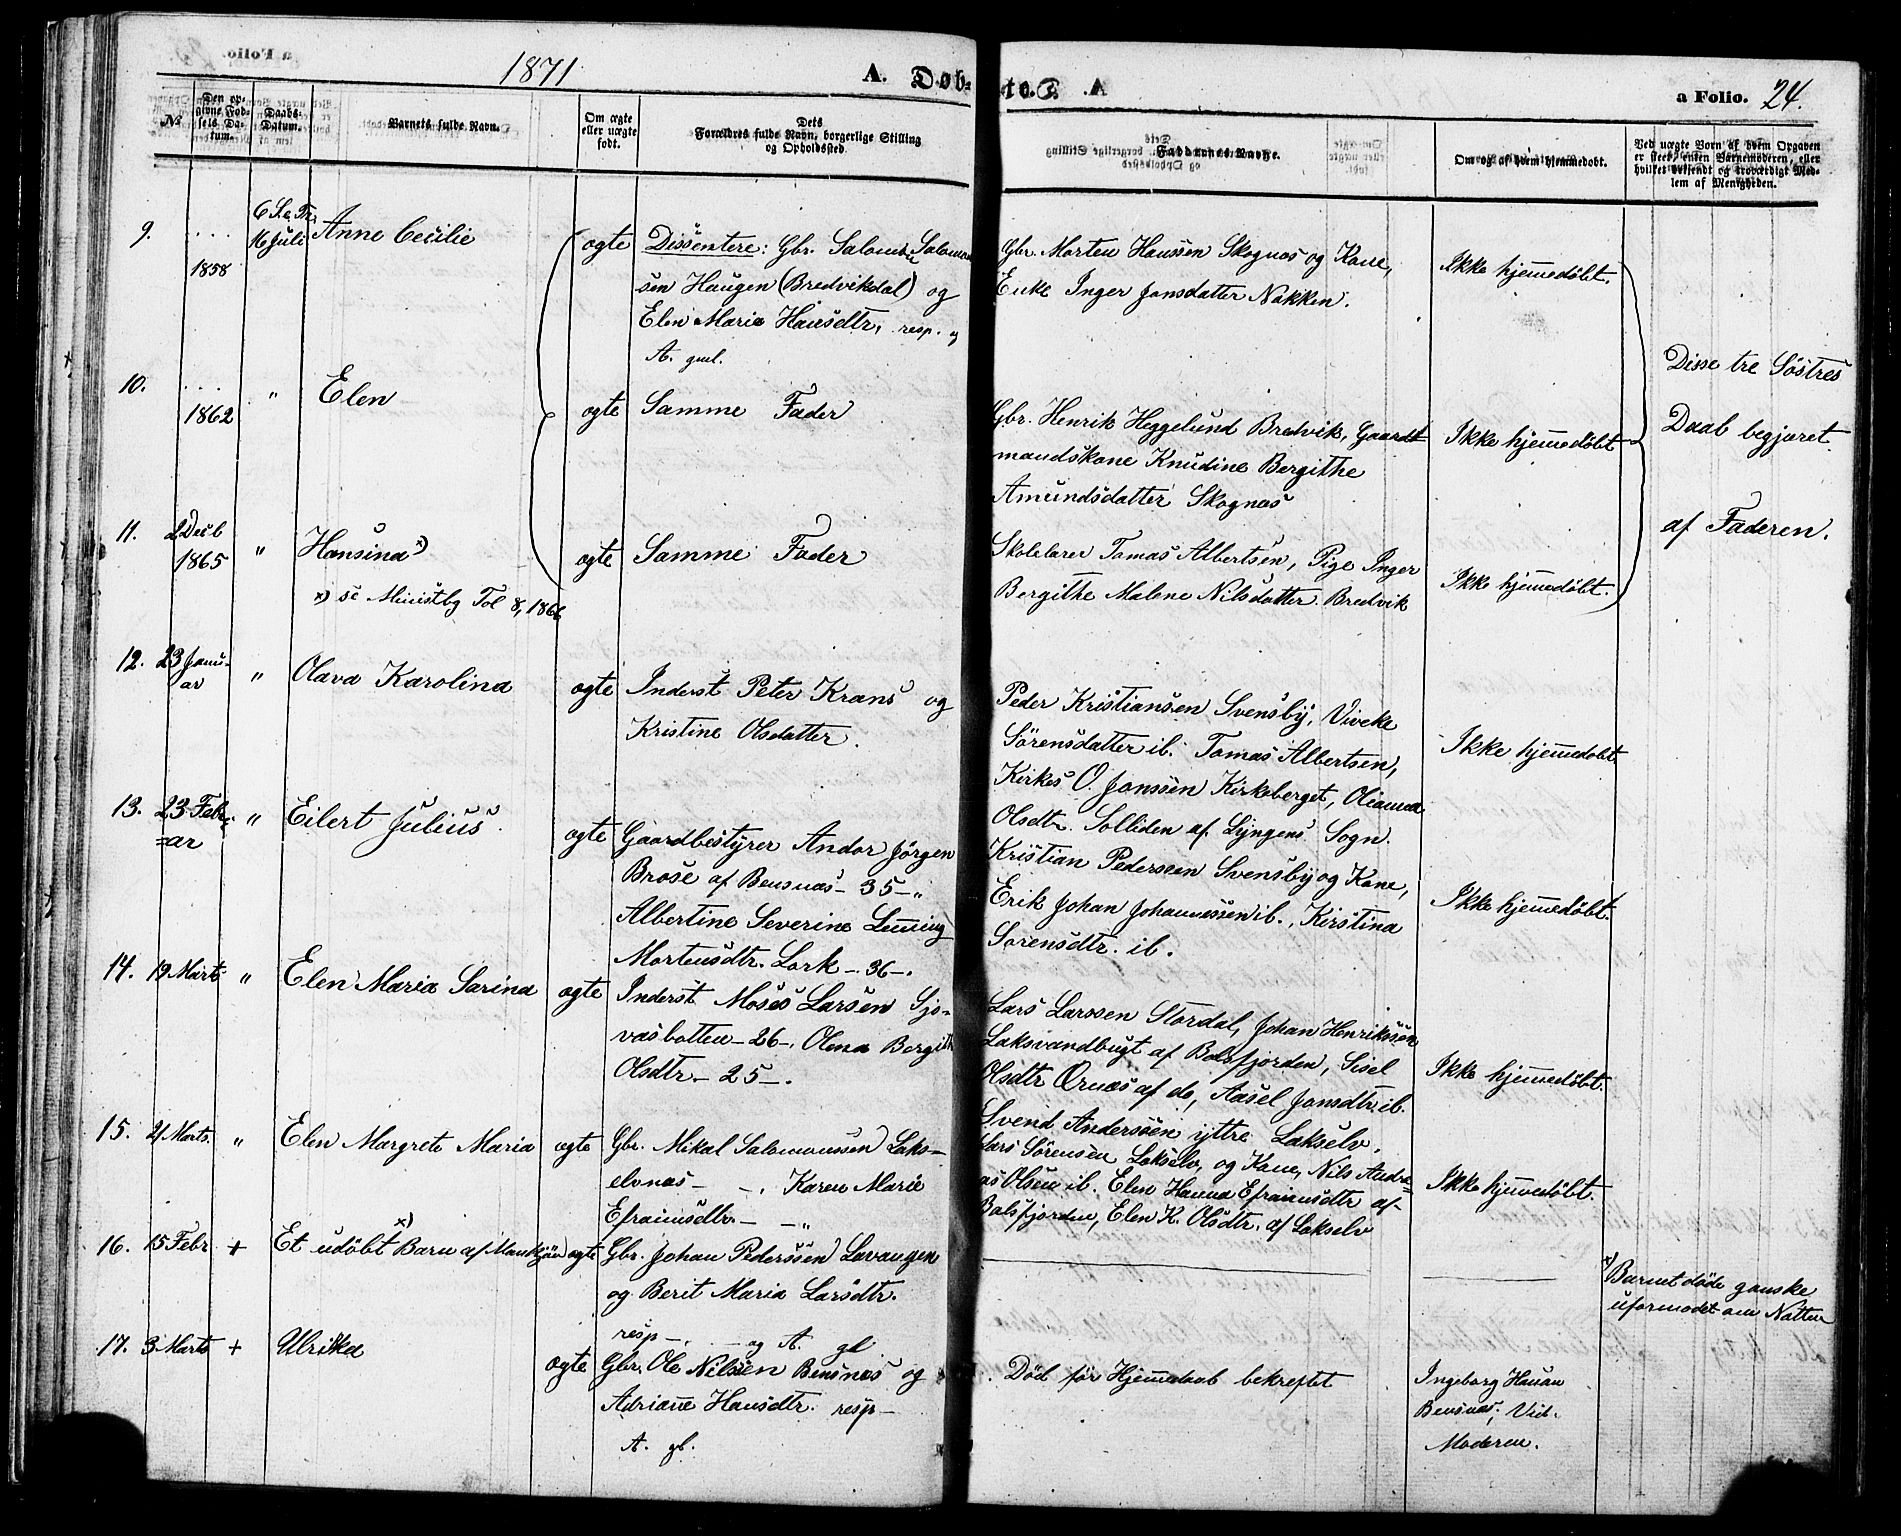 1871.
A. Døb-
te. A
a Folio. 24.
№
Den op-
givne Fød-
sels Da-
tum.
Daabs-
Datum.
Barnets fulde Navn.
Om ægte
eller uægte
født.
Dets
Forældres fulde Navn, borgerlige Stilling
og Opholdssted.
Faddernes Navne.
Om og af hvem hjemmedøbt.
Ved uægte Børn af hvem Opgaven
er skeet, enten Barnemoderen, eller
hvilket velkjendt og troværdigt Med-
lem af Menigheden.
9.
1858
6 S. e. Tr.
16 Juli
Anne Cecilie
ægte
Dissentere: Gbr. Salomon Salomon
sen Haugen (Bredvikdal) og
Elen Maria Hansdtr. resp. og
A. gml.
Gbr. Morten Hanssen Skognæs og Kone,
Enke Inger Jonsdatter Nakken.
Ikke hjemmedøbt.
10.
1862
"
Elen
ægte
Samme Fader
Gbr. Henrik Heggelund Bredvik, Gaard
mandskone Knudine Bergithe
Amundsdatter Skognæs
Ikke hjemmedøbt
Disse tre Søstres
Daab begjæret
af Faderen.
11.
2 Decb
1865
"
Hansina x)
x) se Ministbg Fol 8, 1866
ægte
Samme Fader
Skolelærer Tomas Albertsen, Pige Inger
Bergithe Malene Nilsdatter Bredvik
Ikke hjemmedøbt.
12.
23 Janu-
ar
"
Olava Karolina
ægte
Inderst Peter Krans og
Kristine Olsdatter.
Peder Kristiansen Svensby, Viveke
Sørensdatter ib. Tomas Albertsen,
Kirkes O. Jonssen Kirkeberget, Oleanna
Olsdtr. Solliden af Lyngens Sogn.
Ikke hjemmedøbt.
13.
23 Febr.
=ar
"
Eilert Julius.
ægte
Gaardbestyrer Andor Jørgen
Brose af Bensnæs - 35 - "
Albertine Severine Lenning
Mortensdtr. Lork - 36 -.
Kristian Pederssen Svensby og Kone,
Erik Johan Johannessen ib., Kirstina
Sørensdtr. ib.
Ikke hjemmedøbt.
14.
19 Marts
"
Elen Maria Sarina
ægte
Inderst Moses Larsen Sjø-
vasbotten - 26 -. Olena Bergith
Olsdtr. - 25 -.
Lars Larssen Stordal, Johan Henrikssen
Laksvandbugt af Balsfjorden, Sisel
Olsdtr Ørnæs af do, Aasel Jonsdtr. ib.
Svend Anderssen yttre Lakselv.
Ikke hjemmedøbt.
15.
21 Marts.
"
Elen Margrete Maria
ægte
Gbr. Mikal Salomonssen Laks-
elvnæs - -. Karen Marie
Efraimsdtr. - - "
Lars Sørensen Lakselv, og Kone, Nils Andre=
as Olsen ib. Elen Hanna Efraimsdtr af
Balsfjorden, Elen K. Olsdtr. af Lakselv
Ikke hjemmedøbt.
16.
15 Febr
+
Et udøbt x) Barn af Mankjøn
ægte
Gbr. Johan Pederssen Lavangen
og Berit Maria Larsdtr.
resp - . - og A. gl
x) Barnet døde ganske
uformodet om Natten
17.
3 Marts
+
Ulrikka
ægte
Gbr. Ole Nilssen Bensnæs og
Adriane Hansdtr. resp -
A. gl.
Død før Hjemmedaab bekreftet
Ingeborg Hanan
Bensnæs, Vid.
Moderen.